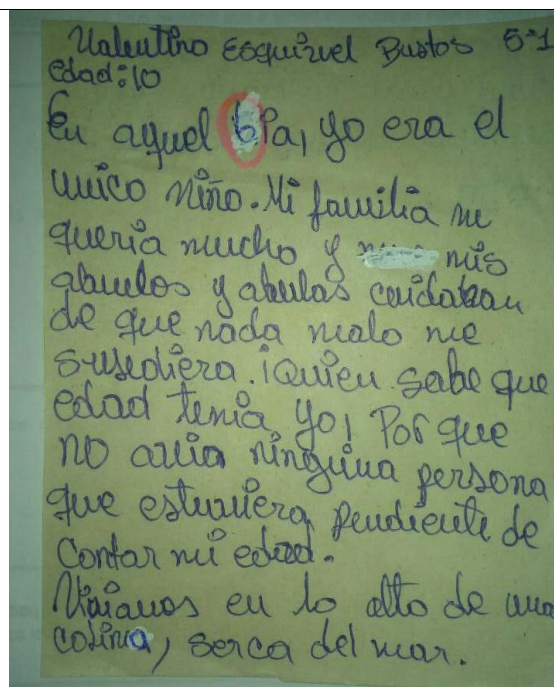 Valentino Esquivel Bustos 5°1
edad:10
En aquel bia, yo era el
unico niño. Mi familia me
queria mucho y mis
abuelos y abulas cuidaban
de que nada malo me
susediera. ¡Quien sabe que
edad tenia yo! Por que
no avia ninguna persona
que estuviera pendiente de
contar mi edad.
Viviamos en lo alto de una
colina, serca del mar.